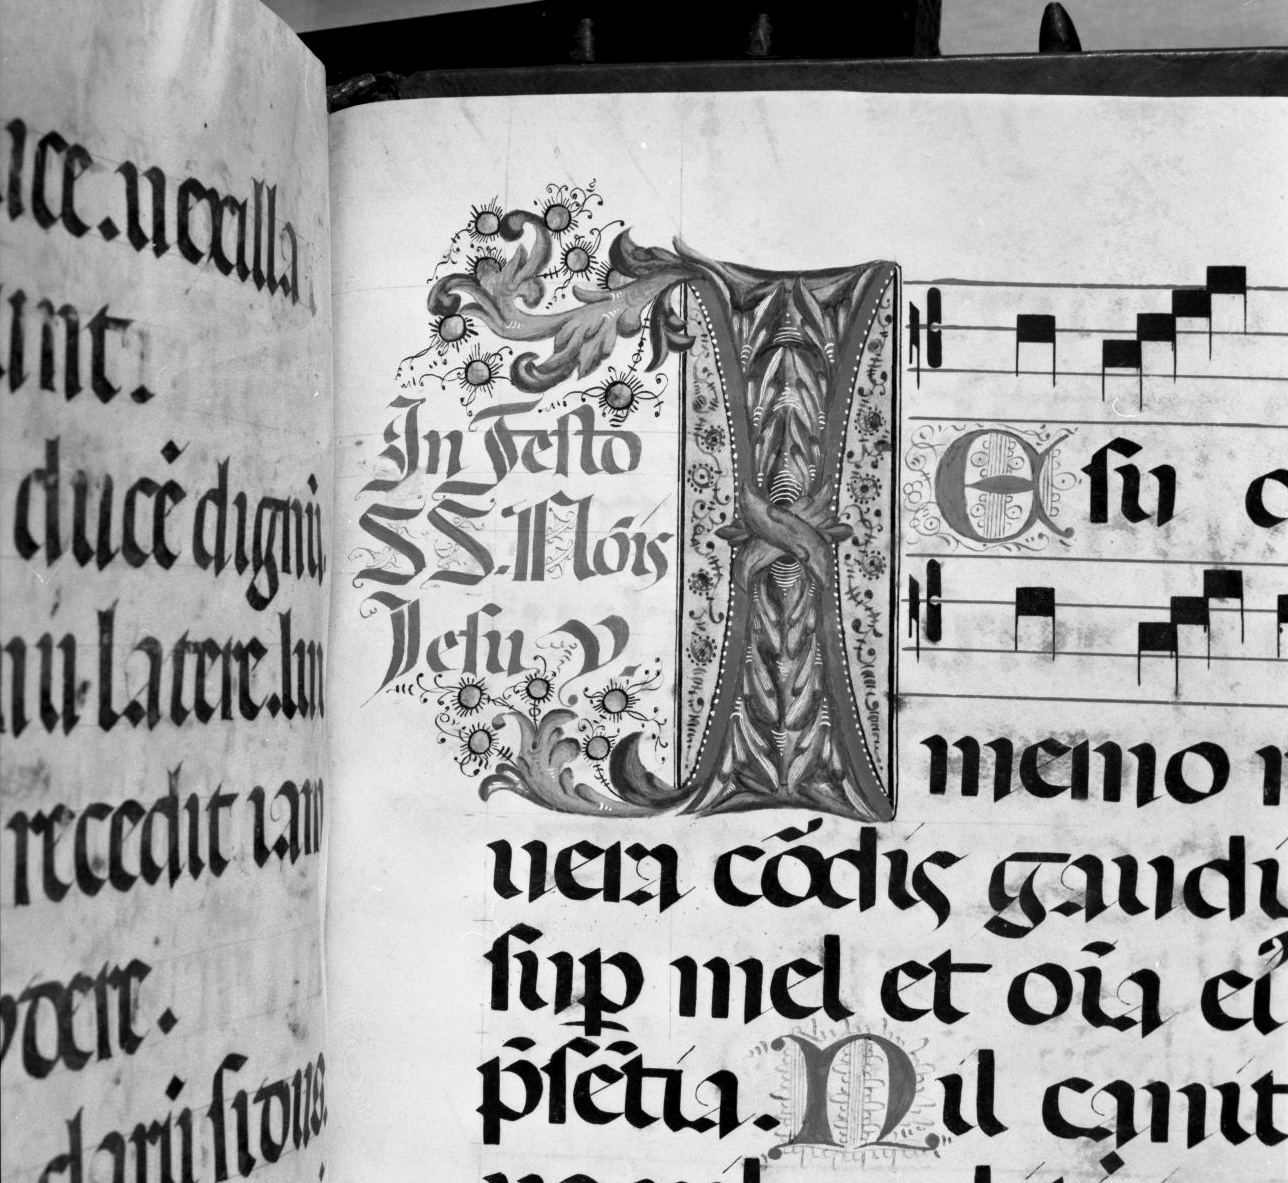 uce. uexilla
unt.
ducē digni
latere. lu
recedit iam
dere.
clarii sidus
In Festo
SS. Nōis
Jesu V.
IEsu
memo
uera cōdis gaudi
sup mel et oīa
p̄sētia. Nil canit